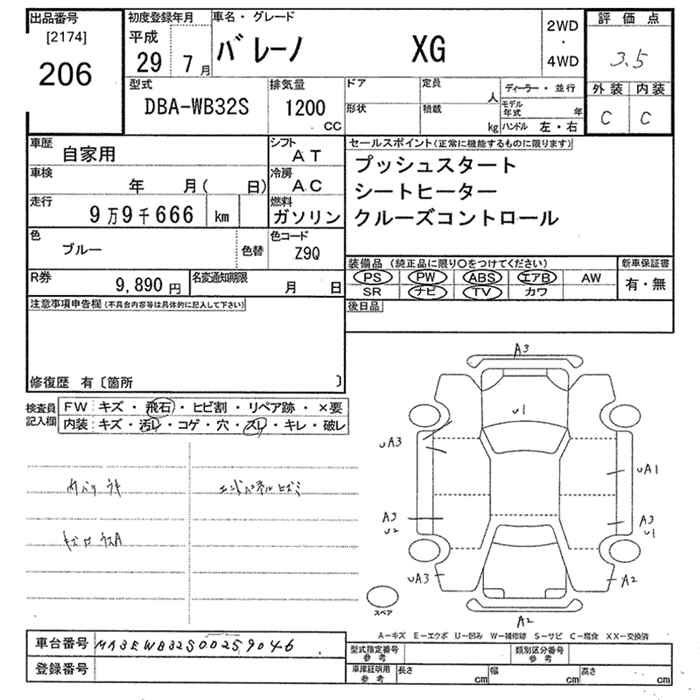 出品番号
[2174]
206
初度登録年月
平成
29 7月
車名・グレード
バレーノ XG
2WD
・
4WD
評価点
3.5
外装 内装
C C
型式
DBA-WB32S
排気量
1200
CC
ドア
定員
人
ディーラー・並行
形状
積載
kg
モデル年式
年
ハンドル 左・右
車歴
自家用
シフト
AT
車検
年 月( 日)
冷房
AC
走行
9万9千666 km
燃料
ガソリン
色
ブルー
色替
色コード
Z9Q
R券
9,890円
名変通知期限
月 日
セールスポイント(正常に機能するものに限ります)
プッシュスタート
シートヒーター
クルーズコントロール
装備品(純正品に限り○をつけてください)
新車保証書
PS PW ABS エアB AW
SR ナビ TV カワ
有・無
後日品
注意事項申告欄(不具合内容等は具体的に記入して下さい)
修復歴 有〔箇所 〕
検査員
記入欄
FW キズ・飛石・ヒビ割・リペア跡・×要
内装 キズ・汚レ・コゲ・穴・スレ・キレ・破レ
エンドパネルヒズミ
A3
U1
UA3
UA1
A3
U2
A3
U1
UA3
A2
A2
スペア
A-キズ E-エクボ U-凹み W-補修跡 S-サビ C-腐食 XX-交換済
車台番号
MA3EWB32S00259046
登録番号
型式指定番号
参考
類別区分番号
参考
車庫証明用
参考
長さ cm
幅 cm
高さ cm